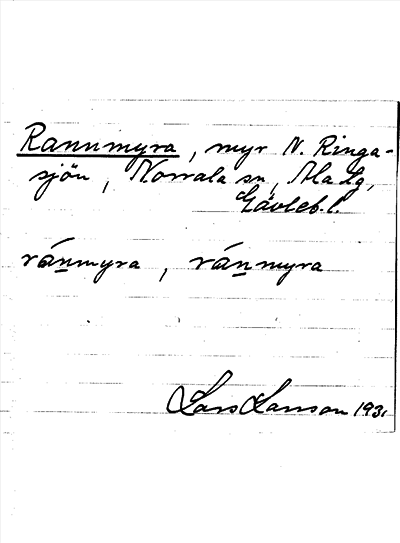 Rannmyra, myr N. Ringa-
sjön, Norrala sn, Ala tg,
Gävleb. l.
ránmyra, ránmyra
Lars Larsson 1931